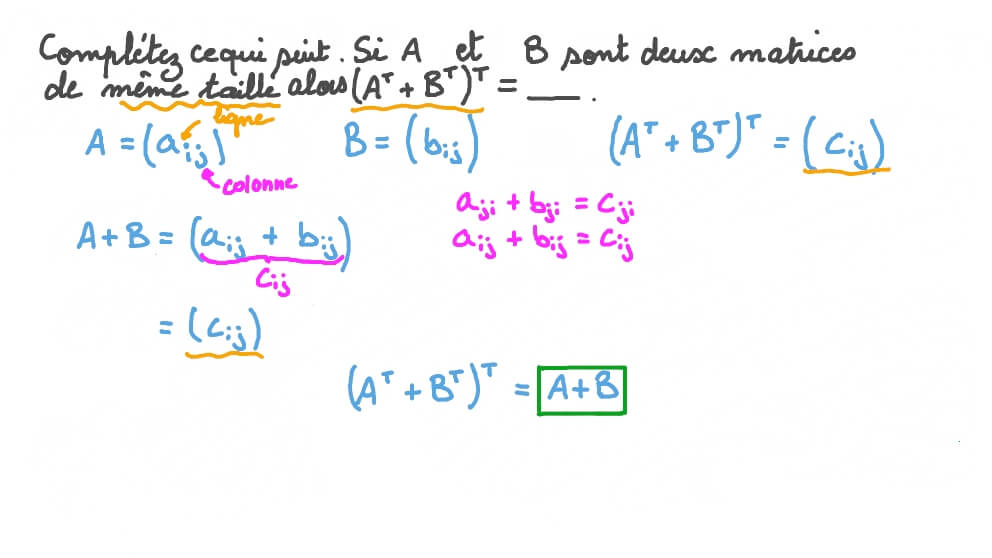 Complétez ce qui suit. Si A et B sont deux matrices
de même taille alors (Aᵀ + Bᵀ)ᵀ = ___ .
ligne
A = (aᵢⱼ) B = (bᵢⱼ) (Aᵀ + Bᵀ)ᵀ = (cᵢⱼ)
colonne
aⱼᵢ + bⱼᵢ = cⱼᵢ
A + B = (aᵢⱼ + bᵢⱼ) aᵢⱼ + bᵢⱼ = cᵢⱼ
cᵢⱼ
= (cᵢⱼ)
(Aᵀ + Bᵀ)ᵀ = A + B